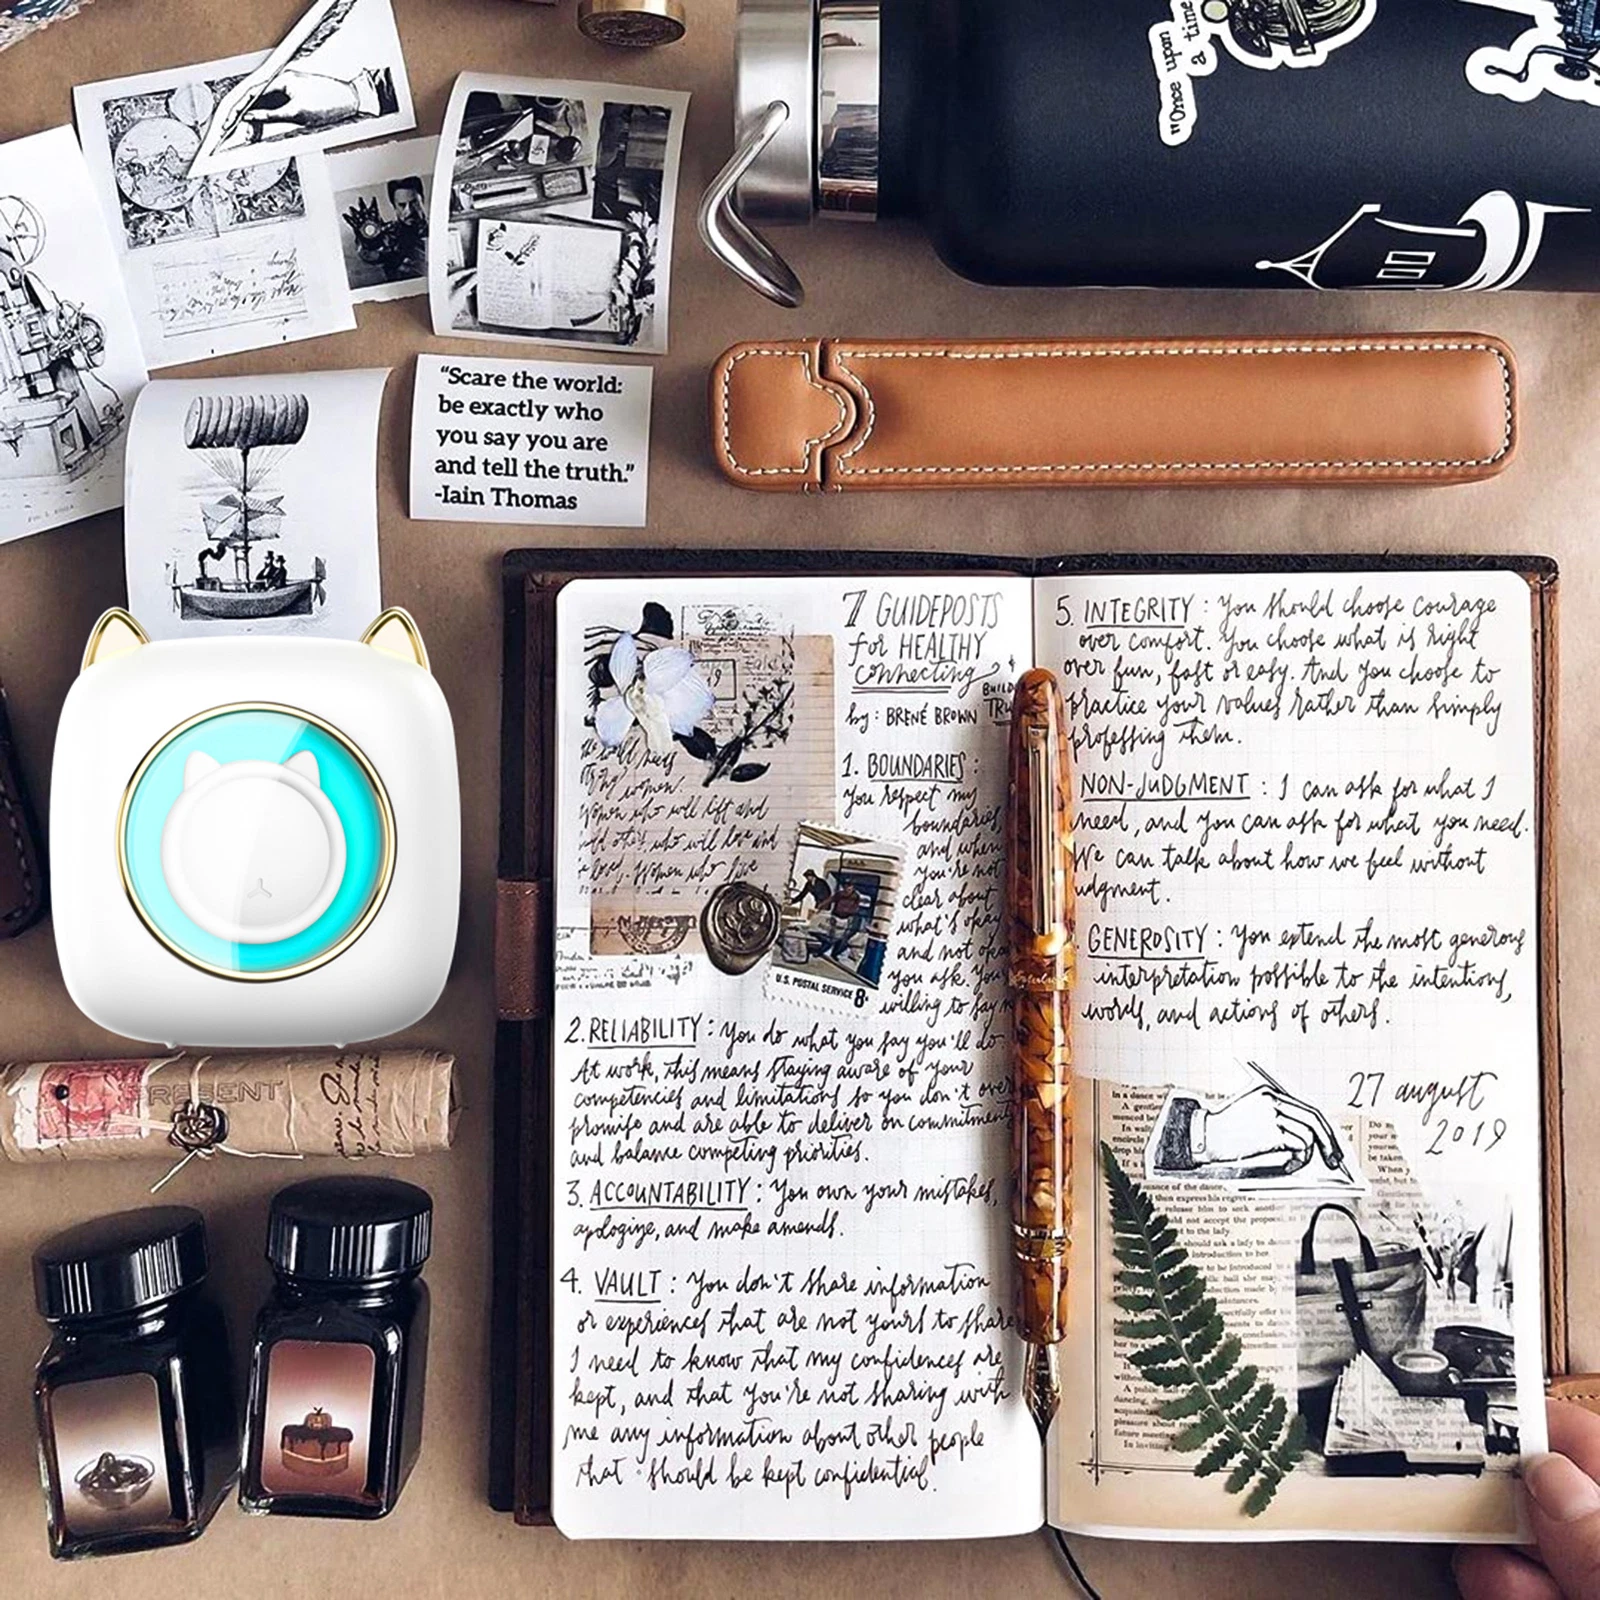 "Once upon
a time
"Scare the world:
be exactly who
you say you are
and tell the truth."
-Iain Thomas
7 GUIDEPOSTS
for HEALTHY
connecting
by: BRENÉ BROWN
1. BOUNDARIES:
You respect my
boundaries,
and when
you're not
clear about
what's okay
and not okay
you ask. You
willing to say
women.
Women who will lift and
who will love and
Women who live
U.S. POSTAL SERVICE 8¢
2. RELIABILITY: You do what you say you'll do
At work, this means staying aware of your
competencies and limitations so you don't over
promise and are able to deliver on commitments
and balance competing priorities.
3. ACCOUNTABILITY: You own your mistakes,
apologize, and make amends.
4. VAULT: You don't share information
or experiences that are not yours to share
I need to know that my confidences are
kept, and that you're not sharing with
me any information about other people
that should be kept confidential.
5. INTEGRITY: You should choose courage
over comfort. You choose what is right
over fun, fast or easy. And you choose to
practice your values rather than simply
professing them.
NON-JUDGMENT: I can ask for what I
need, and you can ask for what you need.
We can talk about how we feel without
judgment.
GENEROSITY: You extend the most generous
interpretation possible to the intentions,
words, and actions of others.
27 august
2019
PRESENT